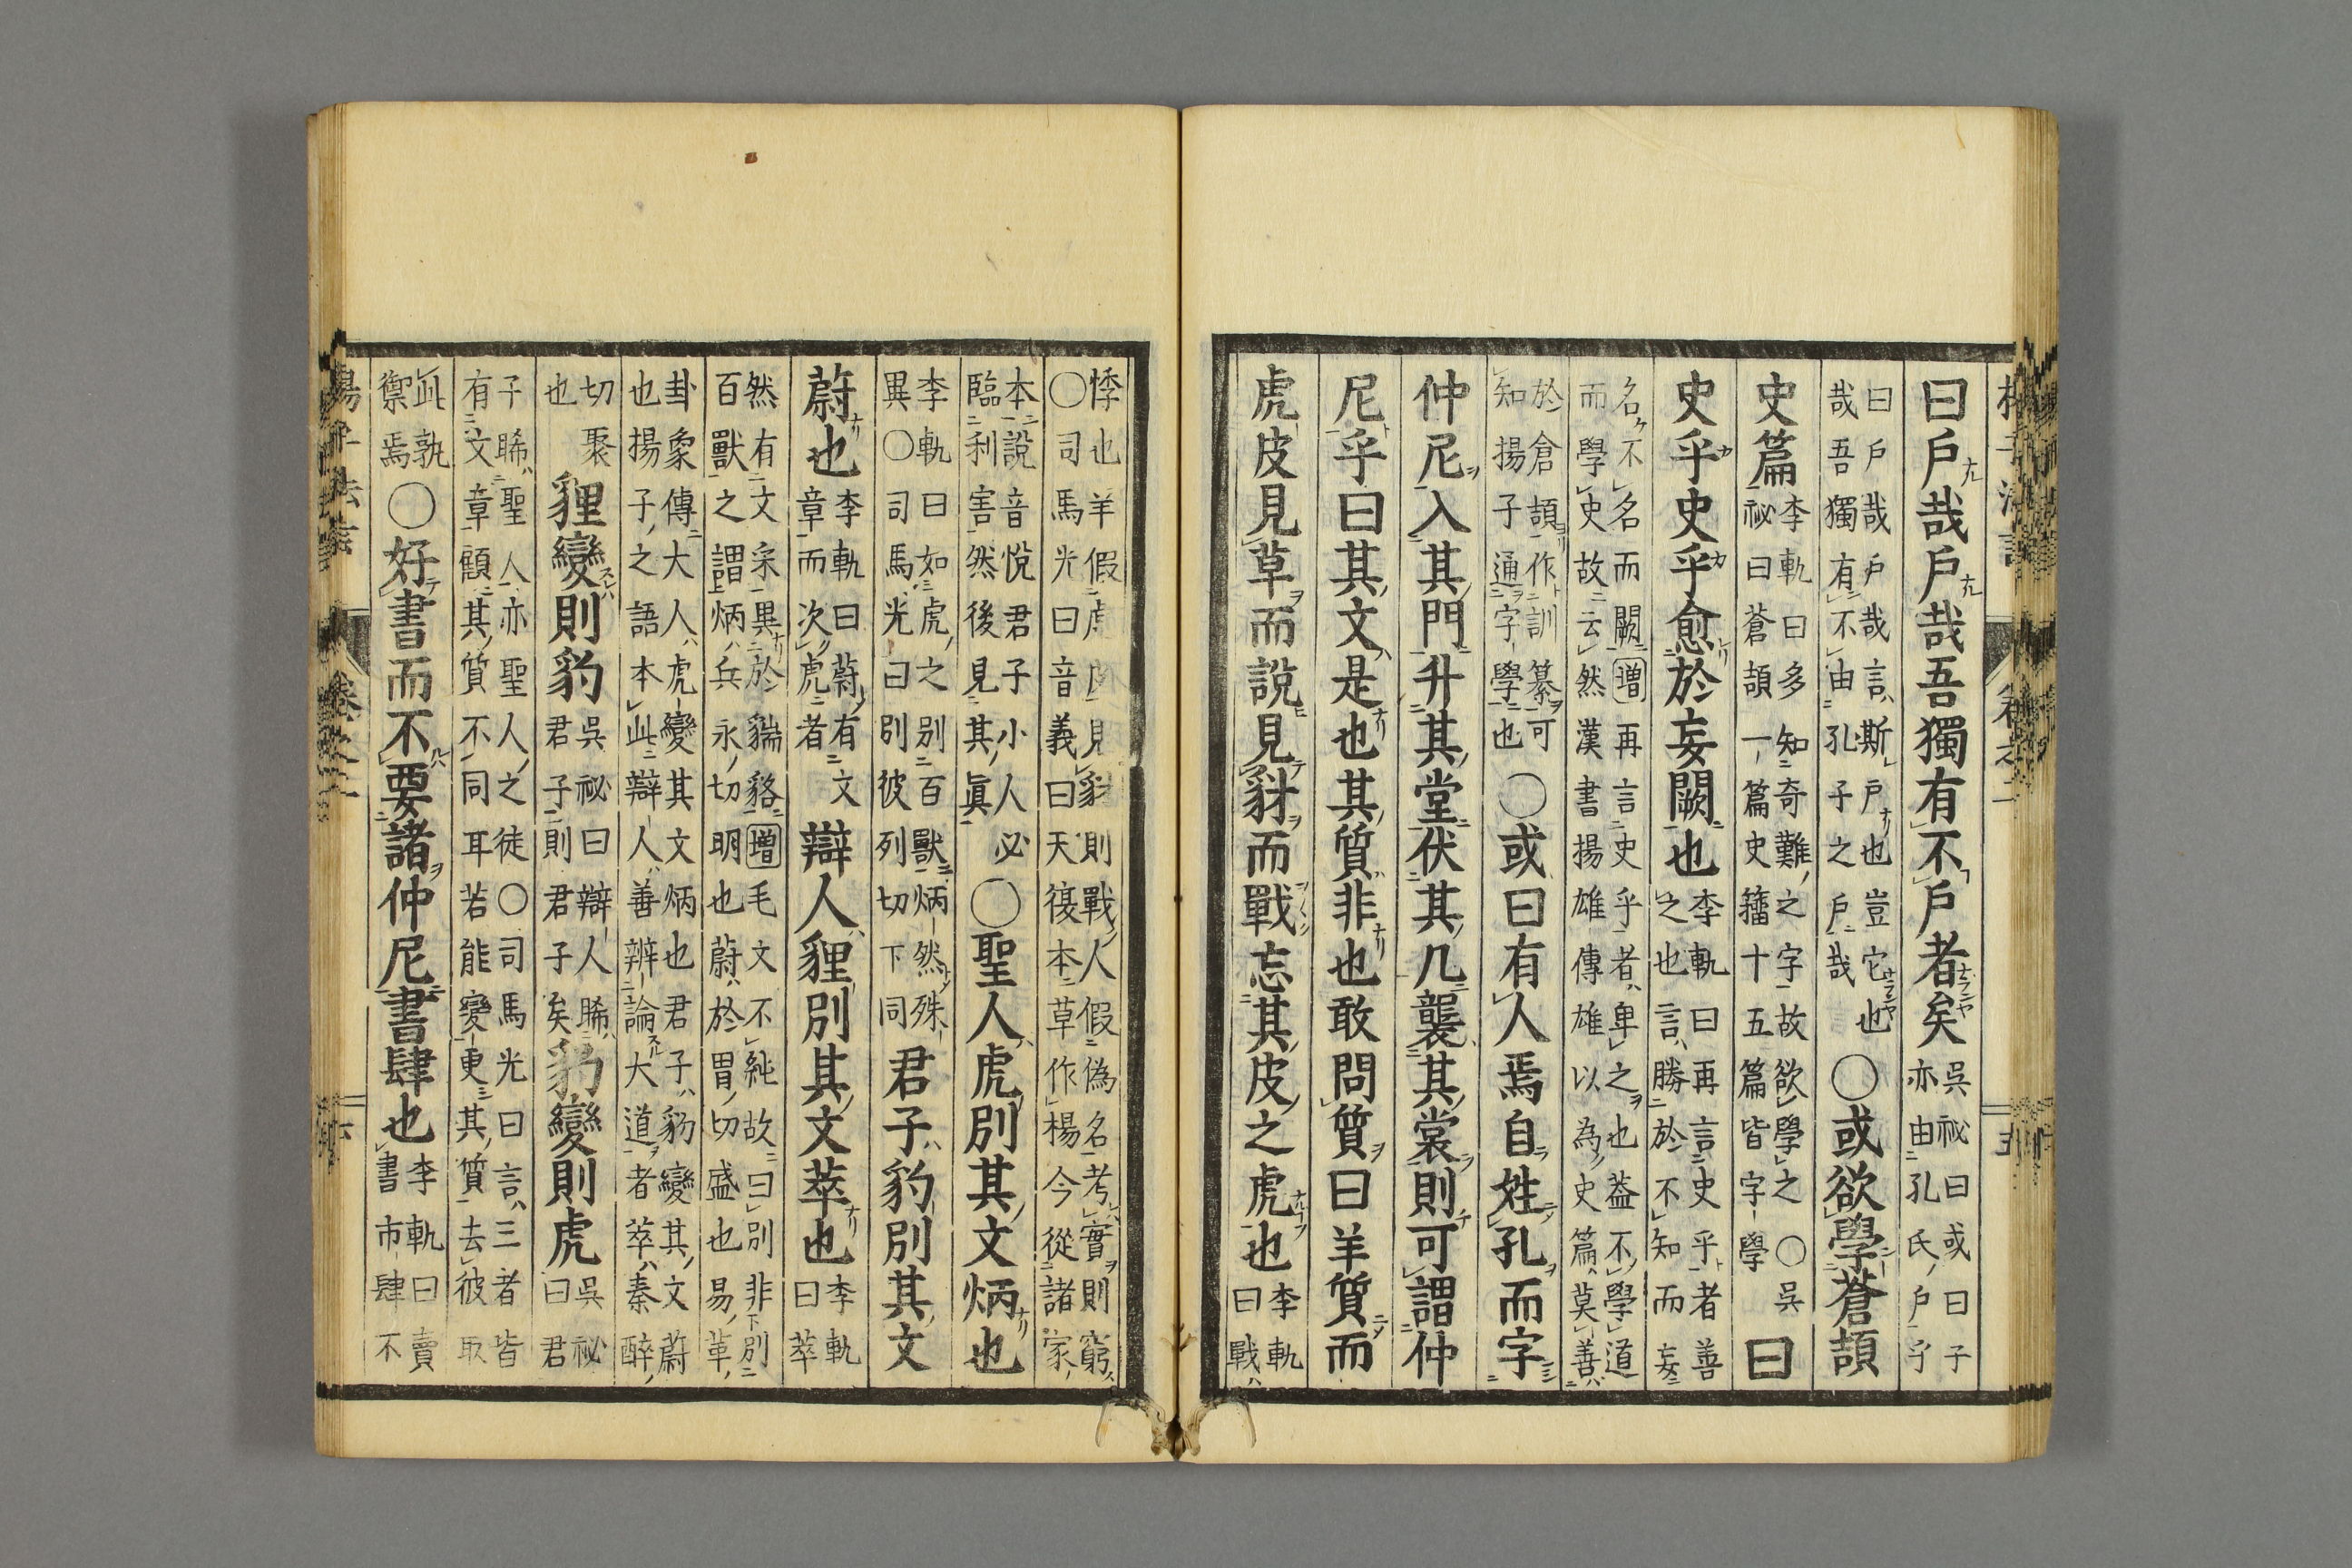 曰戶哉戶哉吾獨有不戶者矣吳祕曰或曰子亦由孔氏戶乎
曰戶哉戶哉言斯戶也豈它也哉吾獨有不由孔子之戶哉〇或欲學蒼頡
史篇李軌曰多知奇難之字故欲學之〇吳祕曰蒼頡一篇史籀十五篇皆字學曰
史乎史乎愈於妄闕也李軌曰再言史乎者善之也言勝於不知而妄
名不名而闕增再言史乎者卑之也蓋不學道而學史故云然漢書揚雄傳雄以為史篇莫善
於倉頡作訓纂可知揚子通字學也〇或曰有人焉自姓孔而字
仲尼入其門升其堂伏其几襲其裳則可謂仲
尼乎曰其文是也其質非也敢問質曰羊質而
虎皮見草而說見豺而戰忘其皮之虎也李軌曰戰
悸也羊假虎皮見豺則戰人假偽名考實則窮〇司馬光曰音義曰天復本草作楊今從諸家
本說音悅君子小人必臨利害然後見其真〇聖人虎別其文炳也
李軌曰如虎之別百獸炳然殊異〇司馬光曰別彼列切下同君子豹別其文
蔚也李軌曰蔚有文章而次虎者辯人貍別其文萃也李軌曰萃
然有文采異於貒貉增毛文不純故曰別非別百獸之謂炳兵永切明也蔚於胃切盛也易革
卦象傳大人虎變其文炳也君子豹變其文蔚也揚子之語本此辯人善辨論大道者萃秦醉
切聚也貍變則豹吳祕曰辯人睎君子則君子矣豹變則虎吳祕曰君
子睎聖人亦聖人之徒〇司馬光曰言三者皆有文章顧其質不同耳若能變更其質去彼取
此孰禦焉〇好書而不要諸仲尼書肆也李軌曰賣書市肆不
揚子法言 卷之二